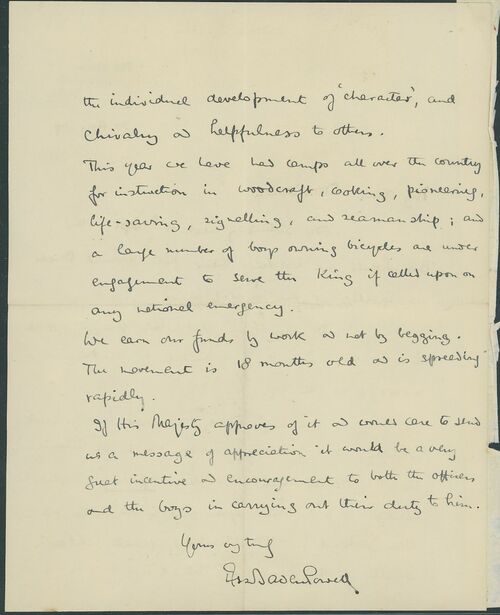 the individual development of 'character', and
chivalry & helpfulness to others.
This year we have had camps all over the country
for instruction in woodcraft, cooking, pioneering,
life-saving, signalling, and seamanship; and
a large number of boys owning bicycles are under
engagement to serve the King if called upon on
any national emergency.
We earn our funds by work & not by begging.
The movement is 18 months old & is spreading
rapidly.
If His Majesty approves of it & would care to send
us a message of appreciation it would be a very
great incentive & encouragement to both the officers
and the boys in carrying out their duty to him.
Yours very truly
RSS Baden Powell